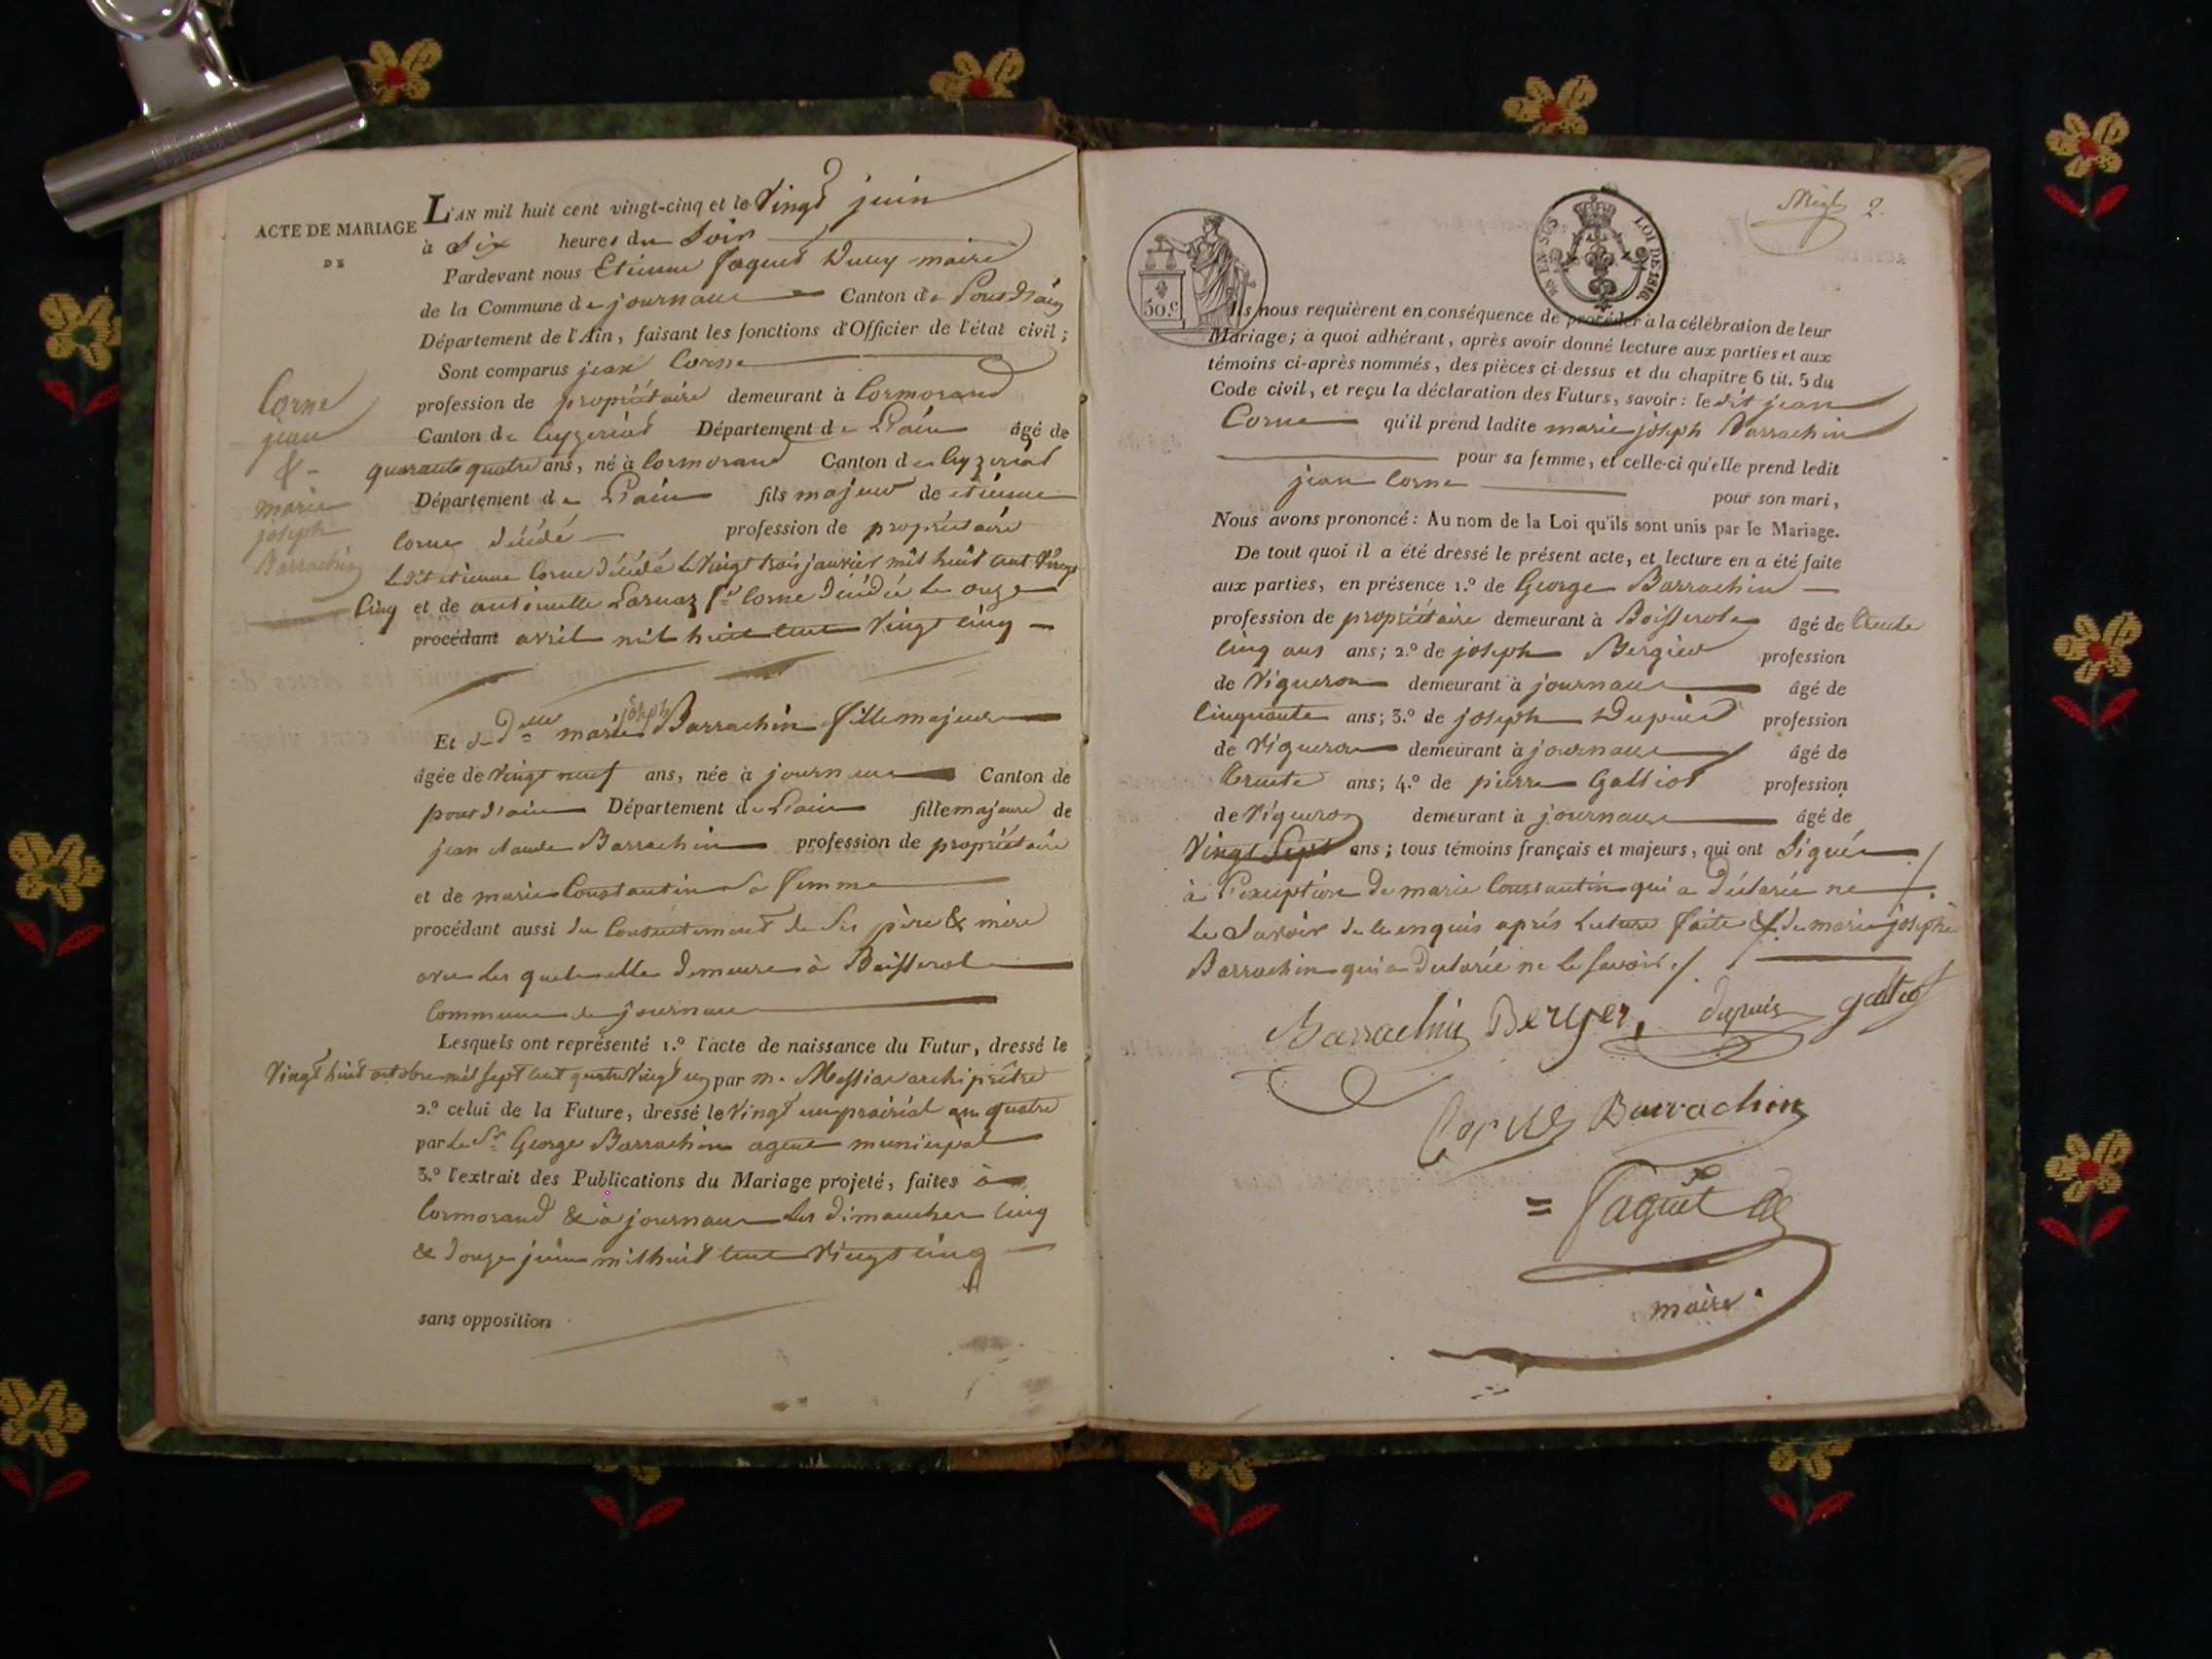 ACTE DE MARIAGE
DE
Corne
jean
&
marie
joseph
Barrachin
L'AN mil huit cent vingt-cinq et le Vingt juin
à Six heures du Soir
Pardevant nous Etienne Jaquet maire
de la Commune de journaux Canton de
Département de l'Ain, faisant les fonctions d'Officier de l'état civil;
Sont comparus jean Corne
profession de propriétaire demeurant à Cormorand
Canton de Ceyzeriat Département de L'ain âgé de
quarante quatre ans, né à Cormorand Canton de Ceyzeriat
Département de L'ain fils majeur de etienne
Corne décédé profession de propriétaire
Ledit etienne Corne décédé le Vingt trois janvier mil huit cent Vingt
Cinq et de antoinette Corne décédée le onze
procédant avril mil huit cent Vingt cinq
Et de Dlle marie joseph Barrachin fille majeure
âgée de Vingt neuf ans, née à journaux Canton de
pont d'ain Département de L'ain fille majeure de
jean claude Barrachin profession de propriétaire
et de marie Constantin Sa femme
procédant aussi du Consentement de Ses père & mère
avec les quels elle demeure à Boisserole
Commune de journaux
Lesquels ont représenté 1.º l'acte de naissance du Futur, dressé le
Vingt huit octobre mil sept cent quatre Vingt un par m. archiprêtre
2.º celui de la Future, dressé le Vingt un prairial an quatre
par Le Sr George Barrachin agent municipal
3.º l'extrait des Publications du Mariage projeté, faites à
Cormorand & à journaux les dimanches Cinq
& douze juin mil huit cent Vingt cinq
sans opposition
2.
50 c
EN SUS
LOI DE 1816.
Ils nous requièrent en conséquence de procéder à la célébration de leur
Mariage; à quoi adhérant, après avoir donné lecture aux parties et aux
témoins ci-après nommés, des pièces ci-dessus et du chapitre 6 tit. 5 du
Code civil, et reçu la déclaration des Futurs, savoir: le dit jean
Corne qu'il prend ladite marie joseph Barrachin
pour sa femme, et celle-ci qu'elle prend ledit
jean Corne pour son mari,
Nous avons prononcé: Au nom de la Loi qu'ils sont unis par le Mariage.
De tout quoi il a été dressé le présent acte, et lecture en a été faite
aux parties, en présence 1.º de George Barrachin
profession de propriétaire demeurant à Boisserole âgé de trente
cinq ans ans; 2.º de joseph Bergier profession
de Vigneron demeurant à journaux âgé de
Cinquante ans; 3.º de joseph Dupuis profession
de Vigneron demeurant à journaux âgé de
trente ans; 4.º de pierre Galliot profession
de Vigneron demeurant à journaux âgé de
Vingt Sept ans; tous témoins français et majeurs, qui ont Signé
à l'exception de marie Constantin qui a déclarée ne
Le Savoir de ce enquis après Lecture faite & de marie joseph
Barrachin qui a declarée ne le Savoir./.
Barrachin Berger, dupuis galliot
Corne Barrachin
= Jaguet
maire